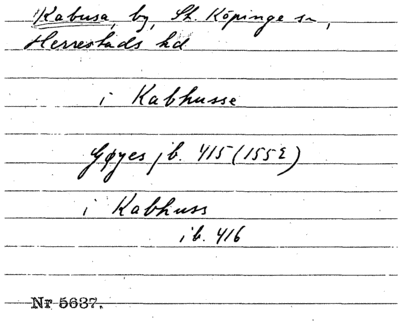 Kabusa, by, St. Köpinge sn,
Herrestads hd
i Kabhusse
Gøyes jb. 415 (1552)
i Kabhuss
ib. 416
Nr 5637.